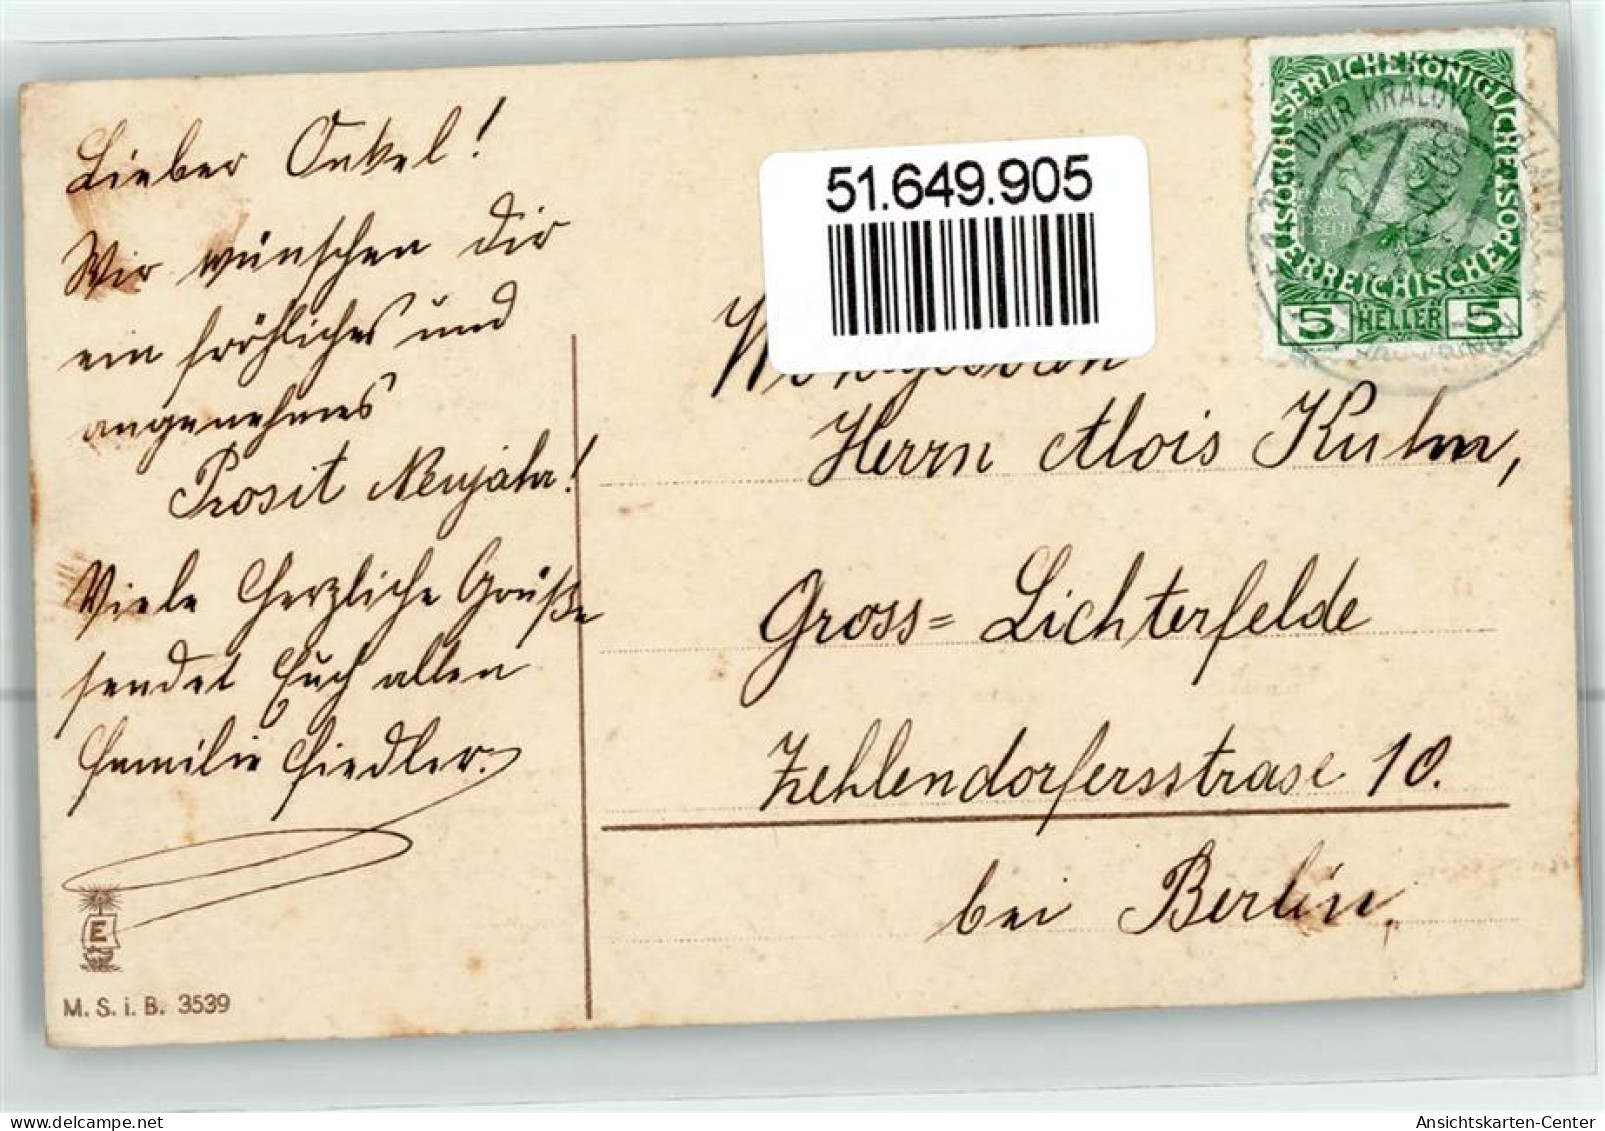 Lieber Onkel!
Wir wünschen dir
ein fröhliches und
angenehmes
Prosit Neujahr!
Viele Herzliche Grüße
sendet Euch allen
Familie Fiedler.
E
M. S. i. B. 3539
51.649.905
Herrn Alois Kuhn,
Gross= Lichterfelde
Zehlendorfersstrase 10.
bei Berlin.
KAISERLICHE KÖNIGLICHE ÖSTERREICHISCHE POST
5 HELLER 5
DVŮR KRÁLOVÉ
Ansichtskarten-Center